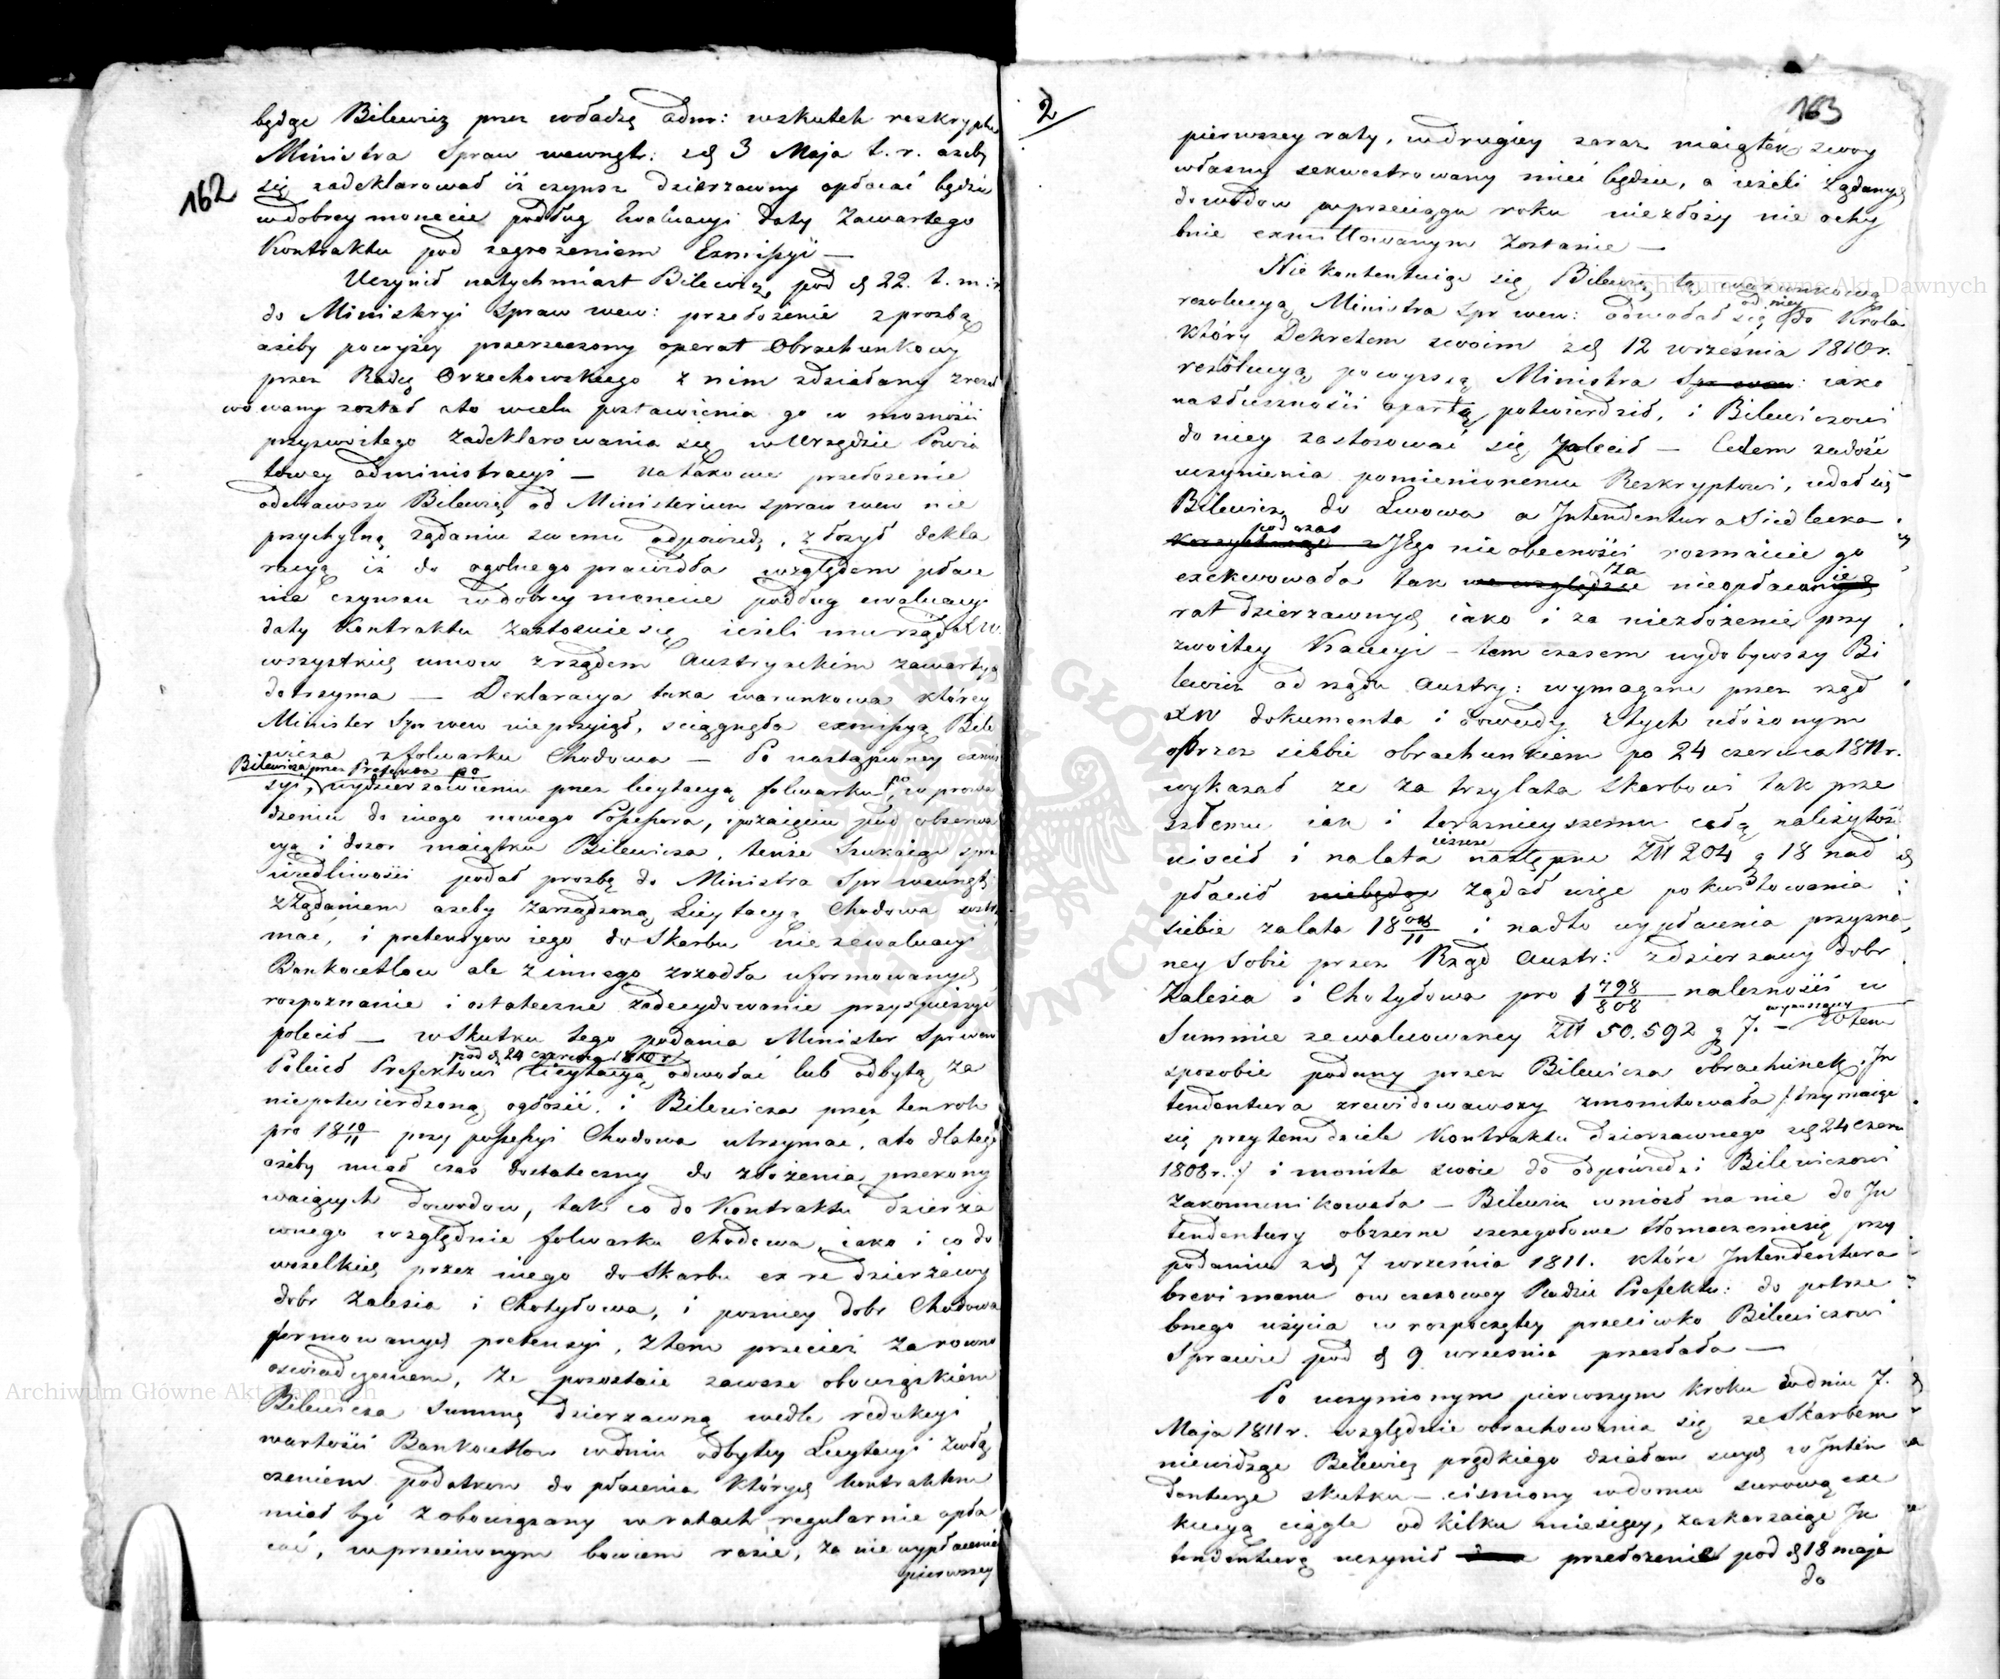 162
będąc Bilewicz przez władzę adm: wskutek reskryptu
Ministra Spraw wewnętr: z d 3 Maja t. r. ażeby
się zadeklarował iż czynsz dzierzawny opłacać będzie
w dobrey monecie podług Ewaluacyi daty zawartego
Kontraktu pod zagrożeniem Exmissyi —
Uczynił natychmiast Bilewicz pod d 22. t. m: r
do Ministryi Spraw wew: przełożenie z prozbą
ażeby powyżey przerzeczony operat Obrachunkowy
przez Radcę Orzechowskiego z nim zdziałany zreal
wowany został a to w celu postawienia go w możności
przyzwoitego zadeklarowania się w Urzędzie Powia
towey administracyi — na takowe przełożenie
odebrawszy Bilewicz od Ministerium spraw wew nie
przychylną żądaniu swemu odpowiedź, złożył dekla
racyą iż do ogolnego prawidła względem płace
nia czynszu w dobrey monecie podług ewaluacyi
daty Kontraktu zastosuie się ieżeli mu rząd X W.
wszystkich umow z rządem Austryackim zawartych
dotrzyma — Deklaracya taka warunkowa którey
Minister Spr wew nie przyiął, sciągnęła exmissyą Bile
wicza z folwarku Chodowa — Po nastąpioney exmis
Bilewicza przez Prefekta po
syi, wydzierzawieniu przez licytacyą folwarku, po w prowa
dzeniu do niego nowego Possesora, i zaięciu pod obserwa
cyą i dozor maiątku Bilewicza, tenże szukaiąc spra
wiedliwości podał prozbę do Ministra Spr wewnętr
z Żądaniem ażeby zarządzoną Licytacyą Chodowa wstrzy
mać, i pretensyow iego do Skarbu nie z ewaluacyi
Bankocetlow ale z innego zrzodła uformowanych
rozpoznanie i ostateczne zadecydowanie przyspieszyć
polecił — w Skutku tego podania Minister Spr wew
pod d 24 czerwca 1810 r
Polecił Prefektowi Licytacyą, odwołać lub odbytą za
niepotwierdzoną ogłosić, i Bilewicza przez ten rok
pro 18 10/11 przy possessyi Chodowa utrzymać, a to dlatego
ażeby miał czas dostateczny do złożenia przekony
waiących dowodow, tak co do Kontraktu dzierza
wnego względnie folwarku Chodowa, iako i co do
wszelkich przez niego do Skarbu ex re dzierżawy
dobr Zalesia i Chotyłowa, i pozniey dobr Chodowa
formowanych pretensyi, z tem przecież zarowno
oświadczeniem, że pozostaie zawsze obowiązkiem
Bilewicza Summę dzierzawną wedle redukcyi
wartości Bankocetlow w dniu odbytey Licytacyi z włą
czeniem podatkow do płacenia których kontraktem
miał być zobowiązany w ratach regularnie opła
cać, w przeciwnym bowiem razie, za nie wypłacenie
pierwszey
2/
163
pierwszey raty, w drugiey zaraz maiątek swoy
własny sekwestrowany mieć będzie, a ieżeli żądanych
dowodow w przeciągu roku niezłoży nie ochy
bnie exmittowanym zostanie —
Nie kontentuiąc się Bilewicz tą warunkową
rezolucyą Ministra Spr wew: odwołał się od niey do Krola
który Dekretem swoim z d 12 września 1810 r.
rezolucyą powyższą Ministra Spr wew: iako
na słuszności opartą potwierdził, i Bilewiczowi
do niey zastosować się zalecił — Celem zadość
uczynienia pomienionemu Reskryptowi, udał się
Bilewicz do Lwowa a Intendentura Siedlecka
podczas
Jego nieobecności rozmaicie go
exekwowała tak za nieopłacanie
rat dzierzawnych iako i za niezłożenie przy
zwoitey Kaucyi — tem czasem wydobywszy Bi
lewicz od rządu Austry: wymagane przez rząd
XW dokumenta i dowody z tych ułożonym
przez siebie obrachunkiem po 24 czerwca 1811 r.
wykazał że za trzy lata Skarbowi tak prze
szłemu iak i teraznieyszemu całą należytość
uiścił i na lata ieszcze następne Zlł 204 g 18 nad
płacił żądał więc pokwitowania
siebie za lata 18 08/11 i nadto wypłacenia przyzna
ney Sobie przez Rząd Austr: z dzierzawy dobr
Zalesia i Chotyłowa pro 1 798/808 należności w
Summie zewaluowaney Zlł 50.592 g 7. — wynoszący W tem
sposobie podany przez Bilewicza obrachunek, In
tendentura zrewidowawszy zmonitowała /: trzymaiąc
się przytem dziele Kontraktu dzierzawnego z d 24 czerw
1808 r. :/ i monita swoie do odpowiedzi Bilewiczowi
zakommunikowała — Bilewicz wniósł na nie do In
tendentury obszerne szczegołowe tłomaczenie się przy
podaniu z d 7 września 1811. które Intendentura
brevi manu owczesowey Radzie Prefektu: do potrze
bnego użycia w rozpoczętey przeciwko Bilewiczowi
Sprawie pod d 9 września przesłała —
Po uczynionym pierwszym kroku w dniu 7.
Maja 1811 r. względnie obrachowania się ze Skarbem
niewidząc Bilewicz prędkiego działań swych w Inten
denturze skutku — ciśniony w domu surową exe
kucyą ciągle od kilku miesięcy, zaskarzaiąc In
tendenturę uczynił przełożenie pod d 18 maja
do